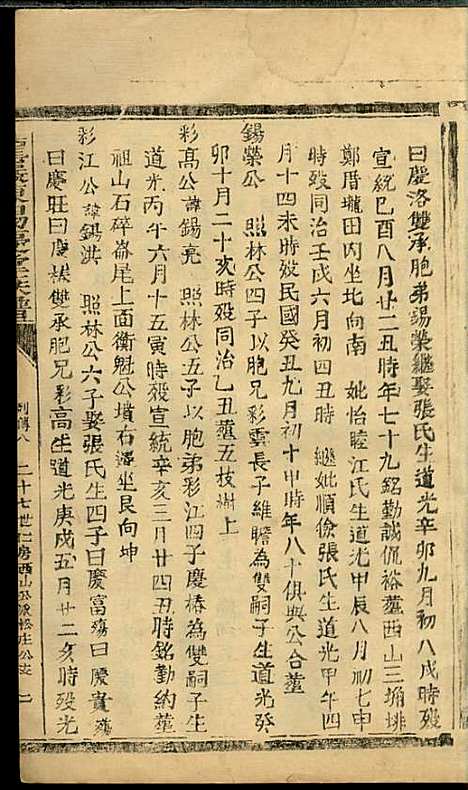 曰慶洛雙承胞弟錫榮繼娶張氏生道光辛卯九月初八戌時歿
宣統己酉八月廿二丑時年七十九銘勤誠侃裕葬西山三角排
鄭厝壠田内坐北向南 妣怡睦江氏生道光甲辰八月初七申
時歿同治壬戌六月初四丑時 繼妣順儉張氏生道光甲午四
月十四未時歿民國癸丑九月初十申時年八十俱與公合葬
錫榮公 照林公四子以胞兄彩雲長子維瞻為雙嗣子生道光癸
卯十月二十亥時歿同治乙丑葬五枝樹上
彩高公諱錫亮 照林公五子以胞弟彩江四子慶椿為雙嗣子生
道光丙午六月十五寅時歿宣統辛亥三月廿四丑時銘勤約葬
祖山石碎崙尾上面衡魁公墳右邊坐艮向坤
彩江公諱錫洪 照林公六子娶張氏生四子曰慶富殤曰慶貴殤
曰慶旺曰慶椿雙承胞兄彩高生道光庚戌五月廿二亥時歿光
列傳八 二十七世仁房西山公派松庄公支 二